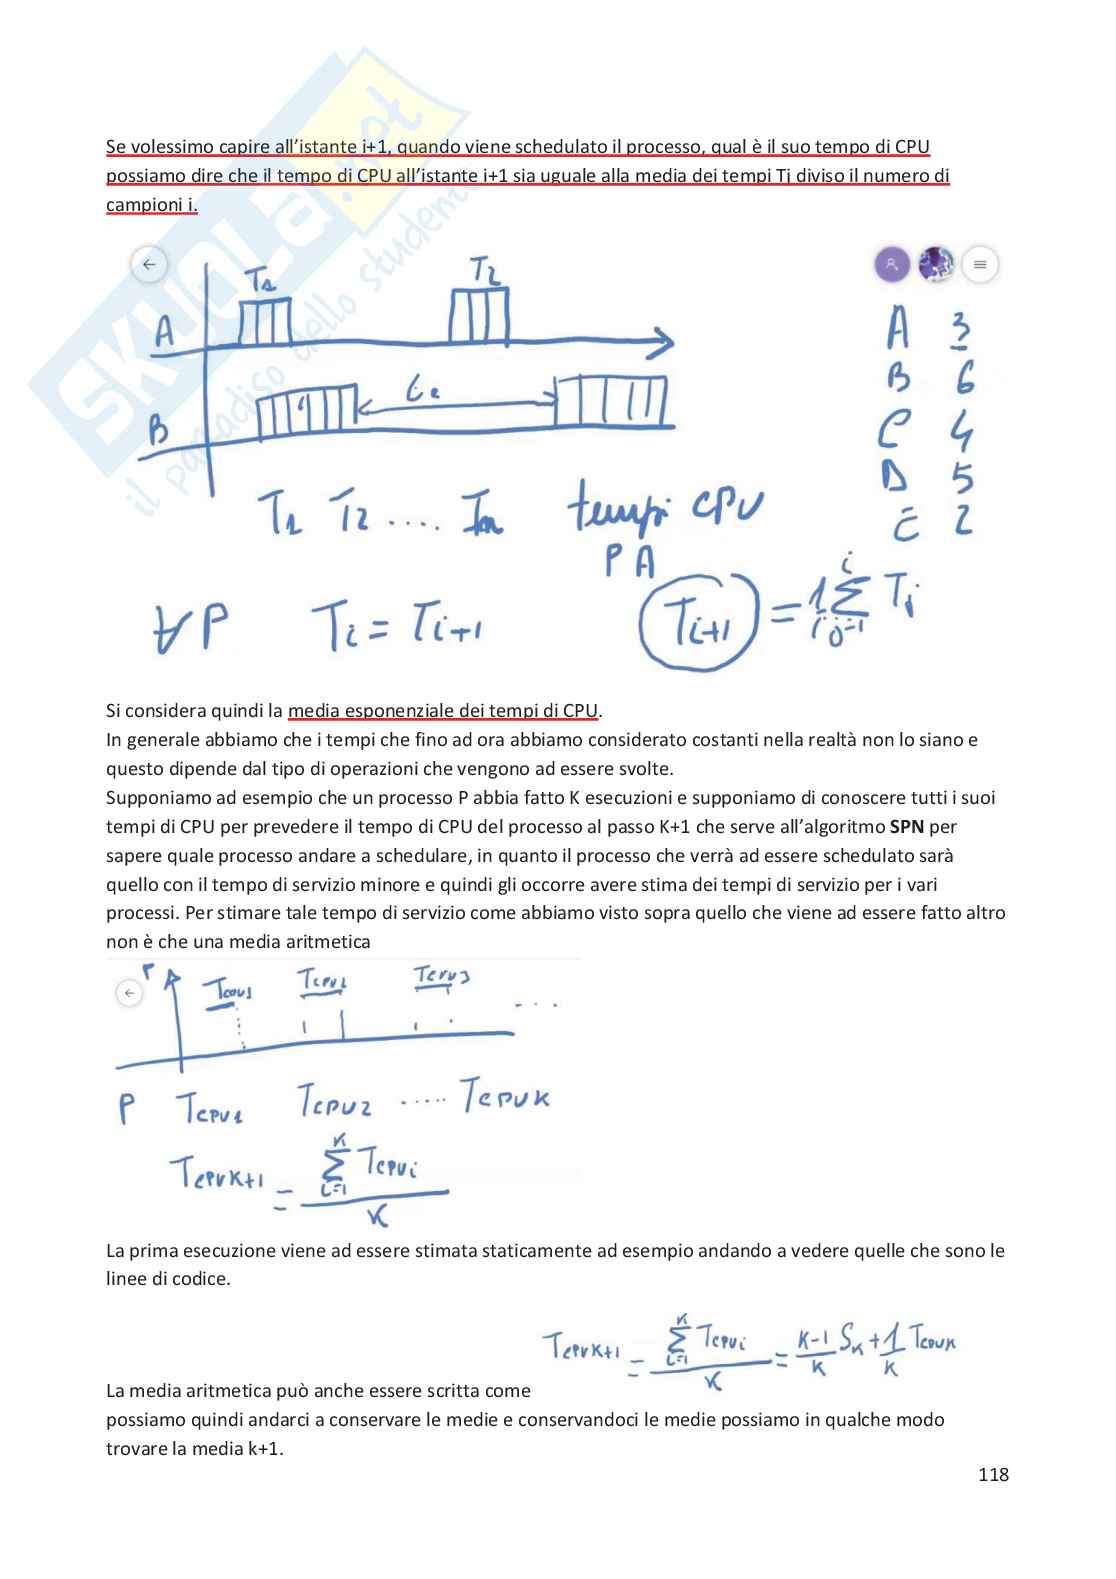 Se volessimo capire all'istante i+1, quando viene schedulato il processo, qual è il suo tempo di CPU
possiamo dire che il tempo di CPU all'istante i+1 sia uguale alla media dei tempi Tj diviso il numero di
campioni i.
SKUOLA.net
il paradiso dello studente
T1 T2
A
B
A 3
B 6
C 4
D 5
E 2
T1 T2 .... Tn tempi CPU
PA
∀P Ti = Ti+1 Ti+1 = 1/i ∑ j=1 i Tj
Si considera quindi la media esponenziale dei tempi di CPU.
In generale abbiamo che i tempi che fino ad ora abbiamo considerato costanti nella realtà non lo siano e
questo dipende dal tipo di operazioni che vengono ad essere svolte.
Supponiamo ad esempio che un processo P abbia fatto K esecuzioni e supponiamo di conoscere tutti i suoi
tempi di CPU per prevedere il tempo di CPU del processo al passo K+1 che serve all'algoritmo SPN per
sapere quale processo andare a schedulare, in quanto il processo che verrà ad essere schedulato sarà
quello con il tempo di servizio minore e quindi gli occorre avere stima dei tempi di servizio per i vari
processi. Per stimare tale tempo di servizio come abbiamo visto sopra quello che viene ad essere fatto altro
non è che una media aritmetica
Tcpu1 Tcpu2 Tcpu3 ...
P Tcpu1 Tcpu2 ..... Tcpuk
Tcpuk+1 = ∑ i=1 K Tcpui / K
La prima esecuzione viene ad essere stimata staticamente ad esempio andando a vedere quelle che sono le
linee di codice.
La media aritmetica può anche essere scritta come Tcpuk+1 = ∑ i=1 K Tcpui / K = K-1/K Sk + 1/K Tcpuk
possiamo quindi andarci a conservare le medie e conservandoci le medie possiamo in qualche modo
trovare la media k+1.
118